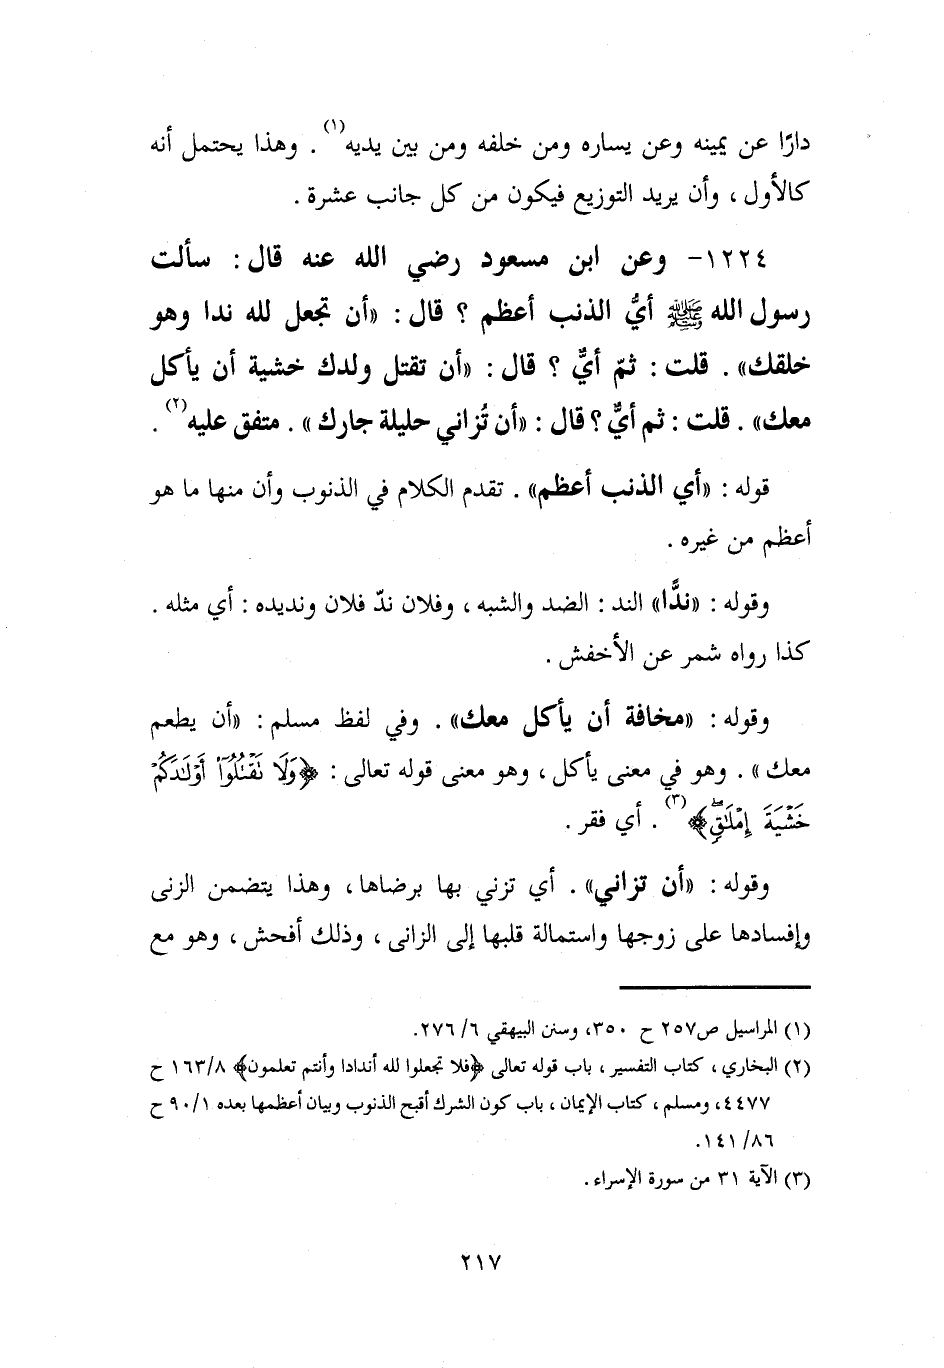 دارًا عن يمينه وعن يساره ومن خلفه ومن بين يديه(١) . وهذا يحتمل أنه
كالأول ، وأن يريد التوزيع فيكون من كل جانب عشرة .
١٢٢٤- وعن ابن مسعود رضي الله عنه قال : سألت
رسول الله ﷺ أيُّ الذنب أعظم ؟ قال : «أن تجعل لله ندا وهو
خلقك» . قلت : ثمّ أيٌّ ؟ قال : «أن تقتل ولدك خشية أن يأكل
معك» . قلت : ثم أيٌّ ؟ قال : «أن تُزاني حليلة جارك» . متفق عليه(٢) .
قوله : «أي الذنب أعظم» . تقدم الكلام في الذنوب وأن منها ما هو
أعظم من غيره .
وقوله : «ندًّا» الند : الضد والشبه ، وفلان ندّ فلان ونديده : أي مثله .
كذا رواه شمر عن الأخفش .
وقوله : «مخافة أن يأكل معك» . وفي لفظ مسلم : «أن يطعم
معك» . وهو في معنى يأكل ، وهو معنى قوله تعالى : ﴿وَلَا نَقْتُلُوٓا۟ أَوْلَٰدَكُمْ
خَشْيَةَ إِمْلَٰقٍۖ﴾(٣) . أي فقر .
وقوله : «أن تزاني» . أي تزني بها برضاها ، وهذا يتضمن الزنى
وإفسادها على زوجها واستمالة قلبها إلى الزانى ، وذلك أفحش ، وهو مع
(١) المراسيل ص٢٥٧ ح ٣٥٠، وسنن البيهقي ٦/ ٢٧٦.
(٢) البخاري ، كتاب التفسير ، باب قوله تعالى ﴿فلا تجعلوا لله أندادا وأنتم تعلمون﴾ ٨/ ١٦٣ ح
٤٤٧٧، ومسلم ، كتاب الإيمان ، باب كون الشرك أقبح الذنوب وبيان أعظمها بعده ١/ ٩٠ ح
٨٦/ ١٤١.
(٣) الآية ٣١ من سورة الإسراء .
٢١٧